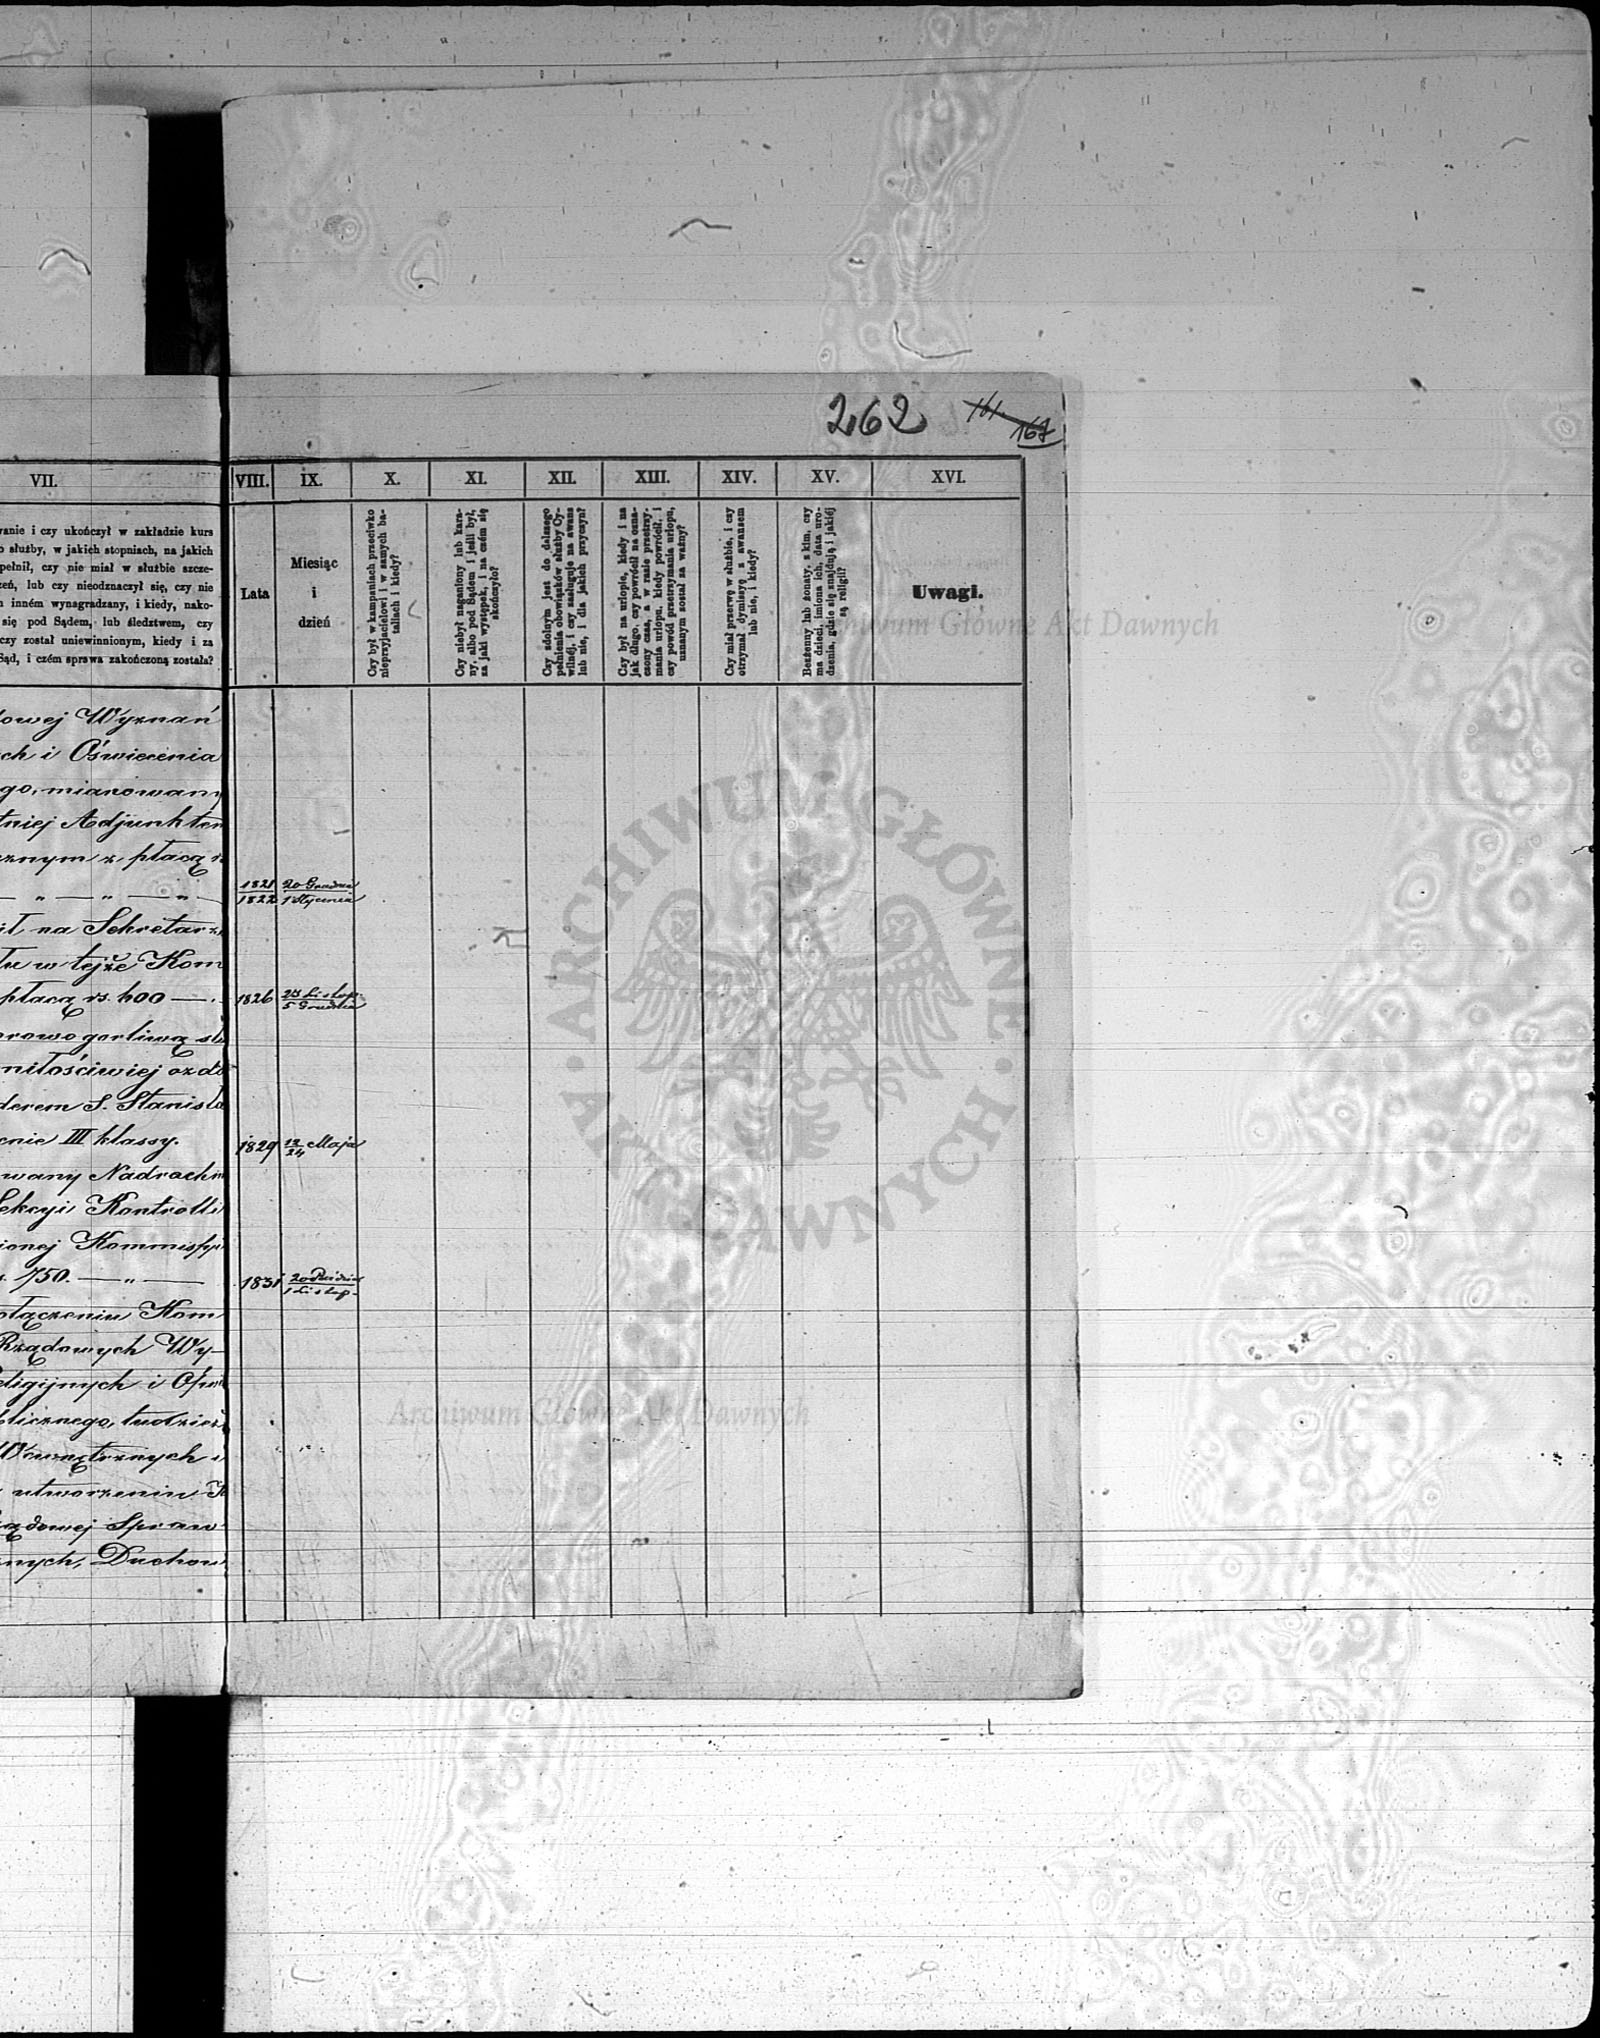 262 161. 167
VII. VIII. IX. X. XI. XII. XIII. XIV. XV. XVI.
wanie i czy ukończył w zakładzie kurs
o służby, w jakich stopniach, na jakich
pełnił, czy nie miał w służbie szcze-
zeń, lub czy nieodznaczył się, czy nie
m inném wynagradzany, i kiedy, nako-
się pod Sądem, lub śledztwem, czy
czy został uniewinnionym, kiedy i za
Sąd, i czém sprawa zakończoną została?
Lata
Miesiąc
i
dzień
Czy był w kampaniach przeciwko
nieprzyjacielowi i w samych ba-
taliach i kiedy?
Czy niebył naganiony lub kara-
ny, albo pod Sądem i jeśli był,
za jaki występek, i na czém się
skończyło?
Czy zdolnym jest do dalszego
pełnienia obowiązków służby Cy-
wilnéj, i czy zasługuje na awans
lub nie, i dla jakich przyczyn?
Czy był na urlopie, kiedy i na
jak długo, czy powrócił na ozna-
czony czas, a w razie przetrzy-
mania urlopu, kiedy powrócił, i
czy powód przetrzymania urlopu,
uznanym został za ważny?
Czy miał przerwę w służbie, i czy
otrzymał dymissyę z awansem
lub nie, i kiedy?
Bezżenny lub żonaty, z kim, czy
ma dzieci, imiona ich, data uro-
dzenia, gdzie się znajdują i jakiéj
są religii?
Uwagi.
Archiwum Główne Akt Dawnych
dowej Wyznań
ch i Oświecenia
go, mianowany
tniej Adjunktem
cznym z płacą r
— " — " — " — 1821 20 Grudnia
1822 1 Stycznia
ił na Sekretarz
łu w tejże Kom
płacą rs. 600 — 1826 23 Listop.
5 Grudnia
orowo gorliwą słu
miłościwiej ozdo
derem S. Stanisła
cnie III klassy. 1829 12/24 Maja
wany Nadrachm
Sekcyi Kontrolli
ionej Kommissyi
. 750. — " — 1831 20 Paździer
1 Listop.
ołączeniu Kom
Rządowych Wy-
eligijnych i Oświe
blicznego, tudzież
Wewnętrznych i
utworzeniu K
ządowej Spraw
znych, Duchow
ARCHIWUM GŁÓWNE AKT DAWNYCH
Archiwum Główne Akt Dawnych